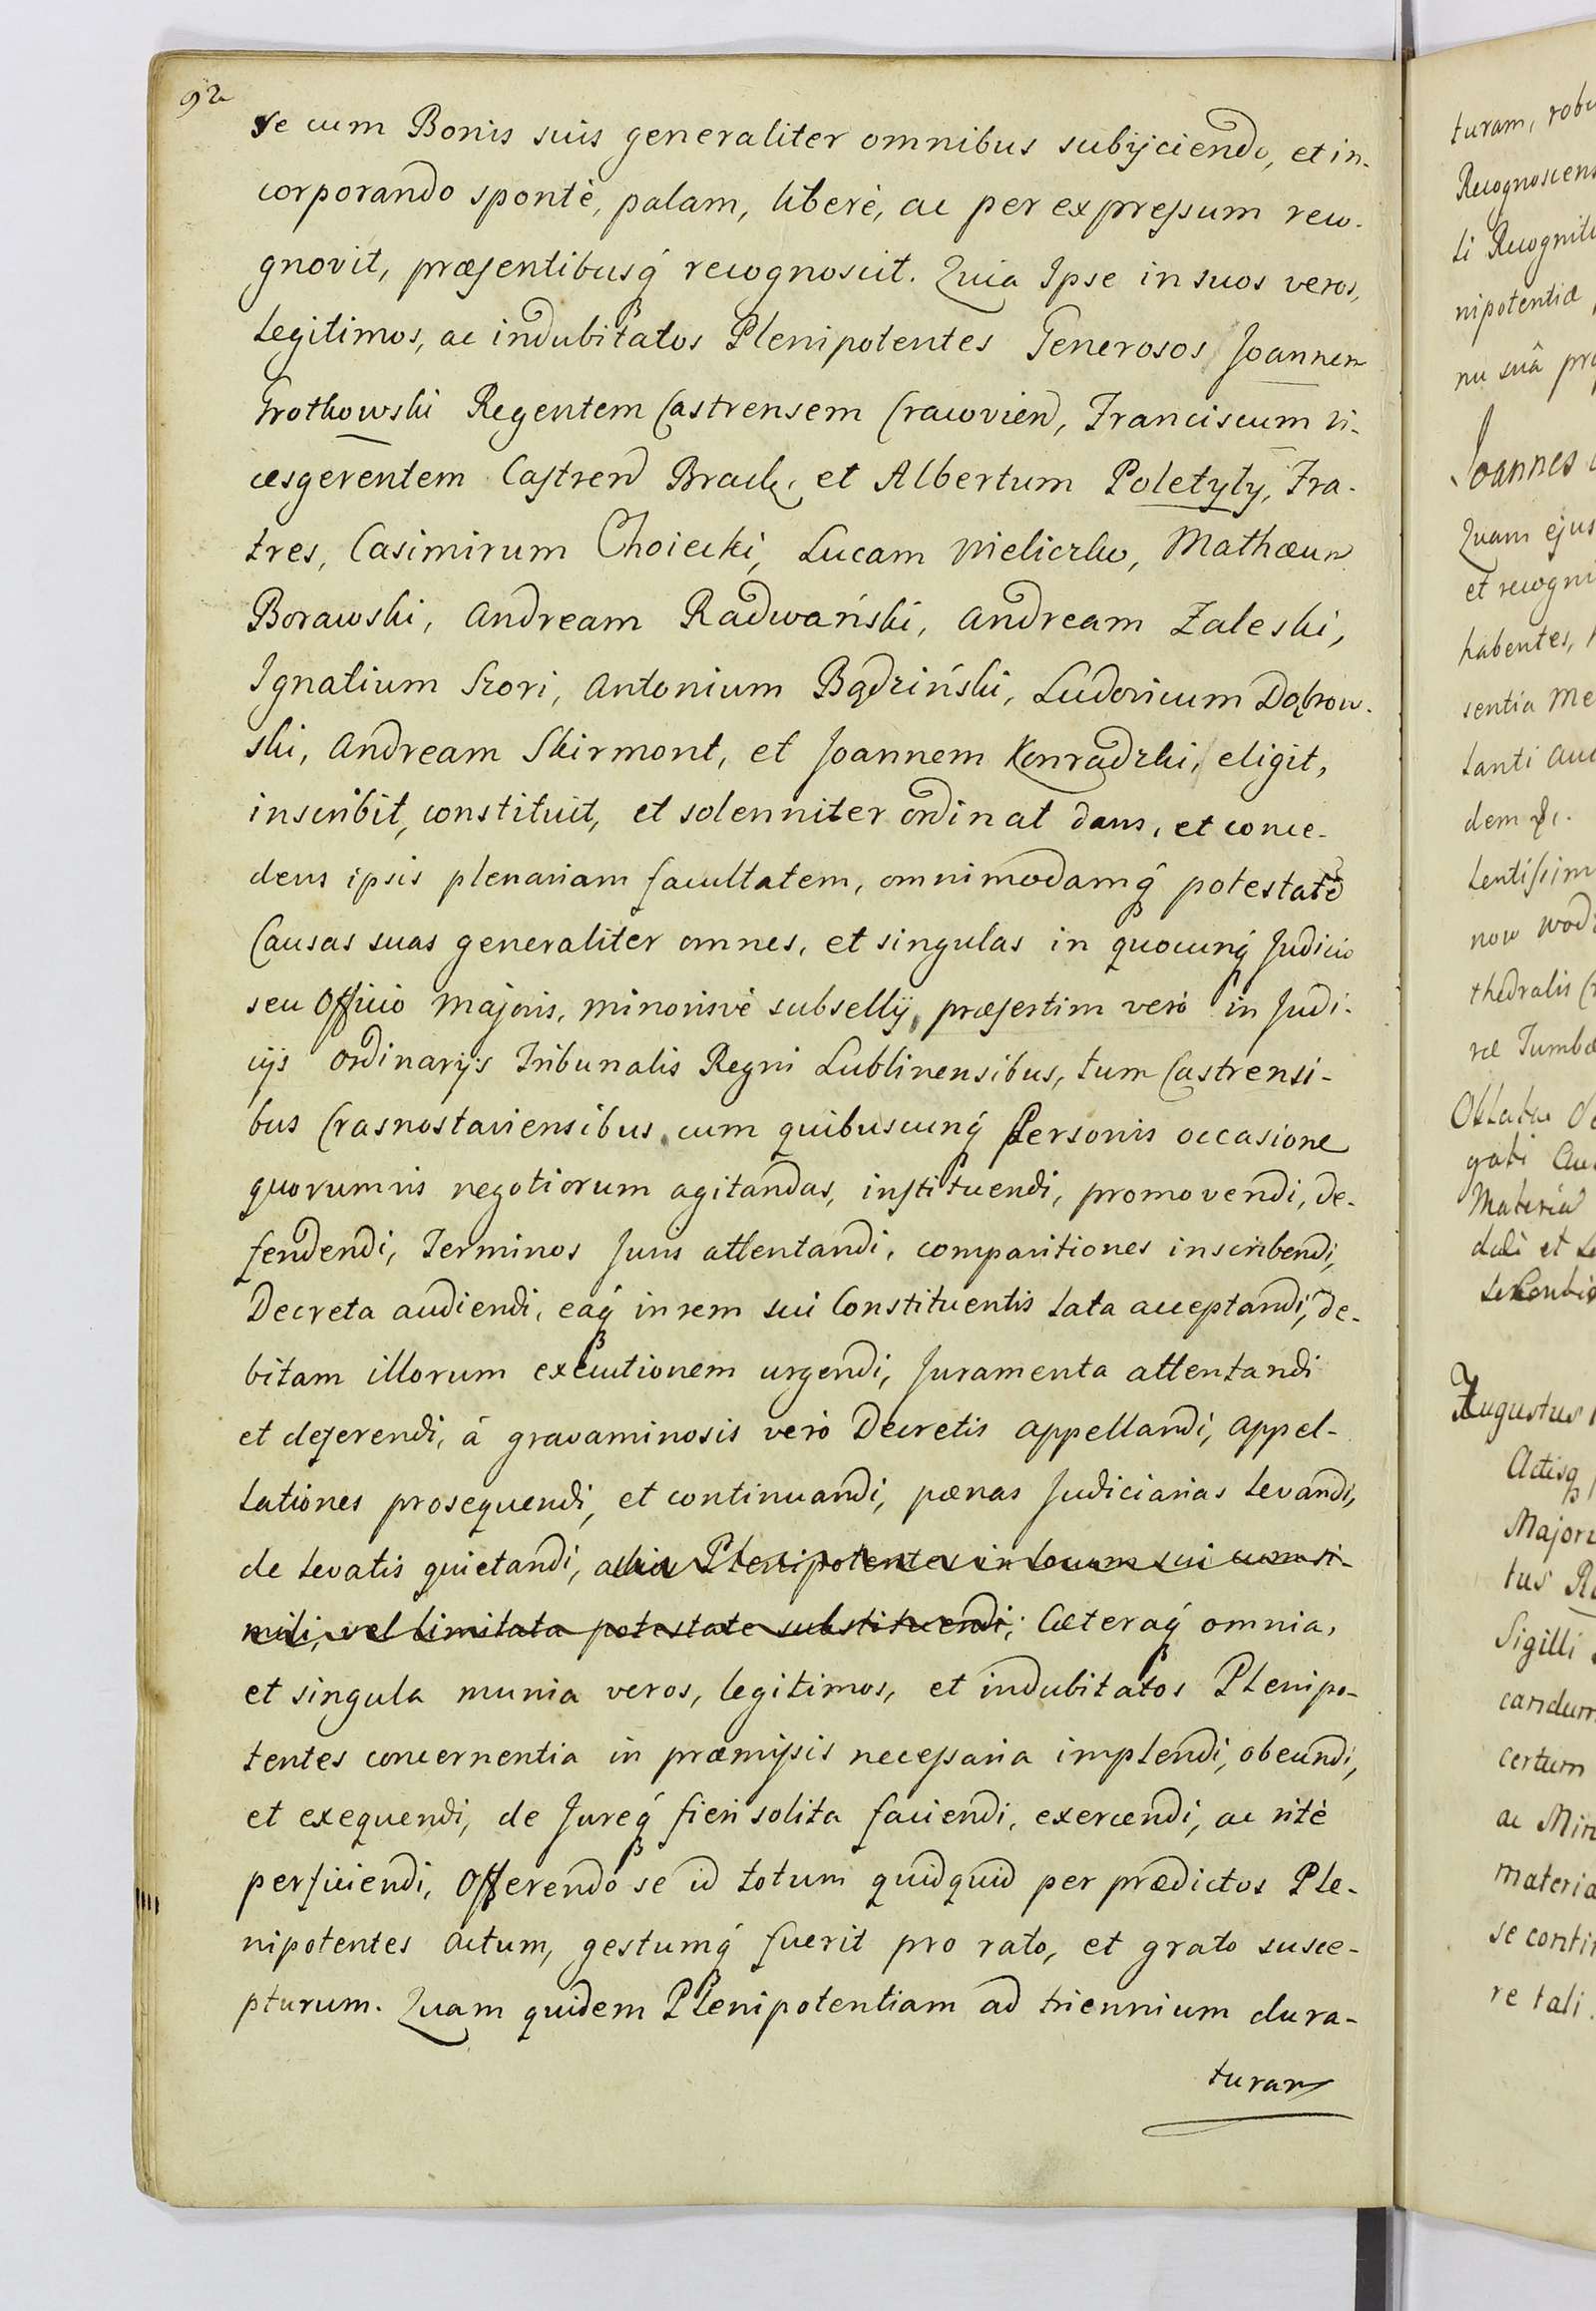 92
se cum Bonis suis generaliter omnibus subijciendo, et in-
corporando spontè, palam, liberè, ac per expressum reco-
gnovit, præsentibusq́ recognoscit. Quia Ipse in suos veros,
legitimos, ac indubitatos Plenipotentes Generosos Joannem
Trotkowski Regentem Castrensem Cracovien, Franciscum vi-
cesgerentem Castren Brack, et Albertum Poletyly, Fra-
tres, Casimirum Choiecki, Lucam Mieliczko, Mathæum
Borawski, Andream Radwański, Andream Zaleski,
Ignatium Szori, Antonium Bądziński, Ludovicum Dąbrow-
ski, Andream Skirmont, et Joannem Konradzki, eligit,
inscribit, constituit, et solenniter ordinat dans, et conce-
dens ipsis plenariam facultatem, omnimodamq́ potestatē
Causas suas generaliter omnes, et singulas in quocunq́ Judicio
seu Officio Majoris, minorisvè subsellij, præsertim verò in Judi-
cijs Ordinarijs Tribunalis Regni Lublinensibus, tum Castrensi-
bus Crasnostaviensibus, cum quibuscunq́ Personis occasione
quorumvis negotiorum agitandas, instituendi, promovendi, de-
fendendi, Terminos Juris attentandi, comparitiones inscribendi,
Decreta audiendi, eaq́ in rem sui Constituentis lata acceptandi, de-
bitam illorum executionem urgendi, Juramenta attentandi
et deferendi, á gravaminosis verò Decretis appellandi, appel-
lationes prosequendi, et continuandi, pœnas Judiciarias levandi,
de levatis quietandi, alios Plenipotentes in locum sui cum si-
mili, vel limitata potestate substituendi; Cæteraq́ omnia,
et singula munia veros, legitimos, et indubitatos Plenipo-
tentes concernentia in præmissis necessaria implendi, obeundi,
et exequendi, de Jureq́ fieri solita faciendi, exercendi, ac ritè
perficiendi, Offerendo se id totum quidquid per prædictos Ple-
nipotentes actum, gestumq́ fuerit pro rato, et grato susce-
pturum. Quam quidem Plenipotentiam ad triennium dura-
turam
turam, robu
Recognoscens
li Recogniti
nipotentiæ
nu suâ pro
Joannes
Quam ejus
et recogni
habentes,
sentia Me
tanti Auc
dem
lentissim
now wod
thedralis
ræ Tumbæ
Oblatæ
grati
Materia
dali et
Augustus
Actisq
Majori
tus
Sigilli
candum
certum
ac Min
materia
se conti
re tali